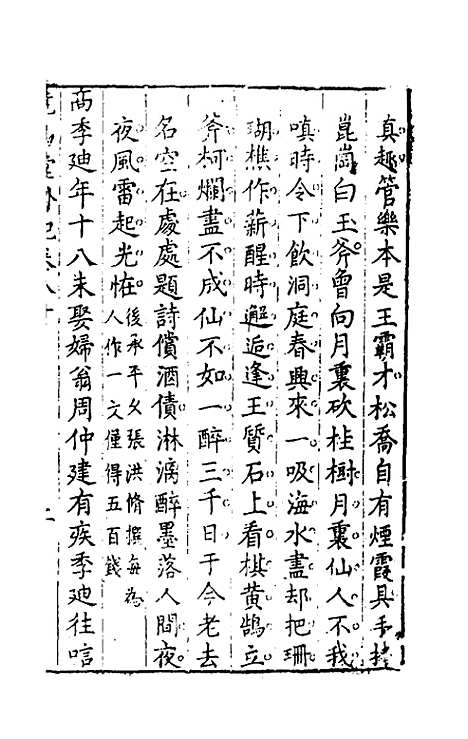 真趣管樂本是王霸才松喬自有煙霞具手持
崑崗白玉斧曾向月裏砍桂樹月裏仙人不我
嗔時令下飲洞庭春興來一吸海水盡却把珊
瑚樵作薪醒時邂逅逢王質石上看棋黃鵠立
斧柯爛盡不成仙不如一醉三千日于今老去
名空在處處題詩償酒債淋漓醉墨落人間夜
夜風雷起光怪後承平久張洪脩撰每為
人作一文僅得五百錢
高季迪年十八未娶婦翁周仲建有疾季迪往唁
堂外紀卷八十